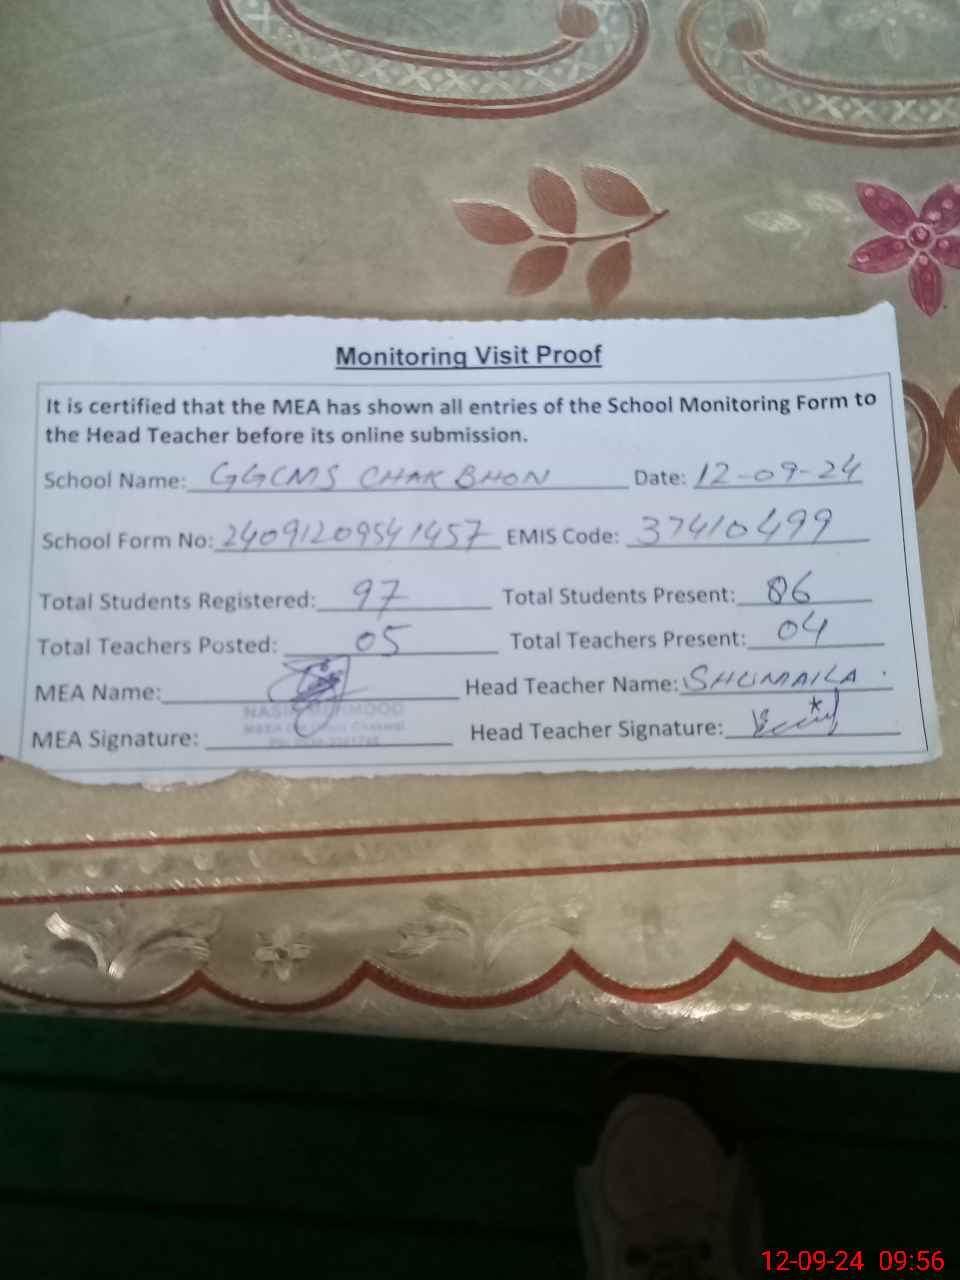 Monitoring Visit Proof
It is certified that the MEA has shown all entries of the School Monitoring Form to
the Head Teacher before its online submission.
School Name: GGCMS CHAK BHON Date: 12-09-24
School Form No: 24091209541457 EMIS Code: 37410499
Total Students Registered: 97 Total Students Present: 86
Total Teachers Posted: 05 Total Teachers Present: 04
MEA Name: Head Teacher Name: SHUMAILA
MEA Signature: Head Teacher Signature:
12-09-24 09:56